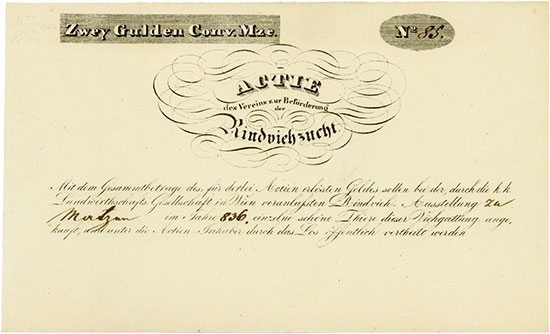 Zwey Gulden Conv. Mze.
No 85.
ACTIE
des Vereins zur Beförderung
der
Rindviehzucht.
Mit dem Gesammtbetrage des, für derlei Actien erlösten Geldes sollen bei der, durch die k. k.
Landwirthschafts Gesellschaft in Wien veranlaßten Rindvieh-Ausstellung zu
Matzen im Jahre 836, einzelne schöne Thiere dieser Viehgattung ange,
kauft, und unter die Actien-Inhaber durch das Los öffentlich vertheilt werden